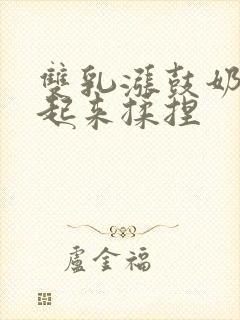 雙乳漲鼓奶
起來揉捏
盧金福